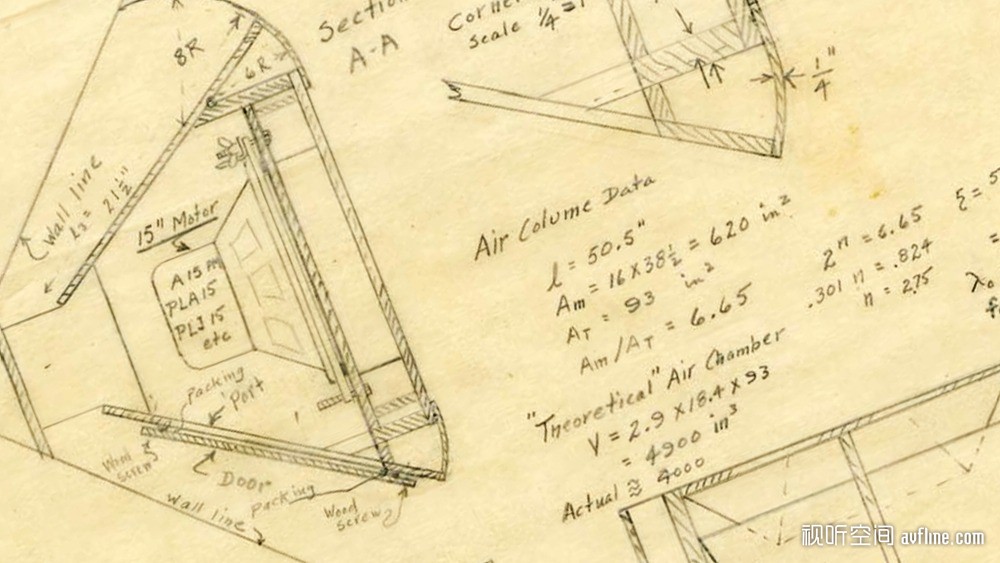 Section
A-A
8R
6R
Wall line
L3 = 21½"
15" Motor
PLA15
PLJ15
etc
Packing
Port
Wood
screw
Door
Packing
Wood
screw
Wall line
scale ¼ = 1
1"
4
Air Column Data
l = 50.5"
Am = 16 X 38½ = 620 in²
AT = 93 in²
Am/AT = 6.65
2ⁿ = 6.65
.301 n = .824
n = 2.75
ξ = 5
=
λo
"Theoretical" Air Chamber
V = 2.9 X 18.4 X 93
= 4900 in³
Actual ≅ 4000
视听空间 avfline.com